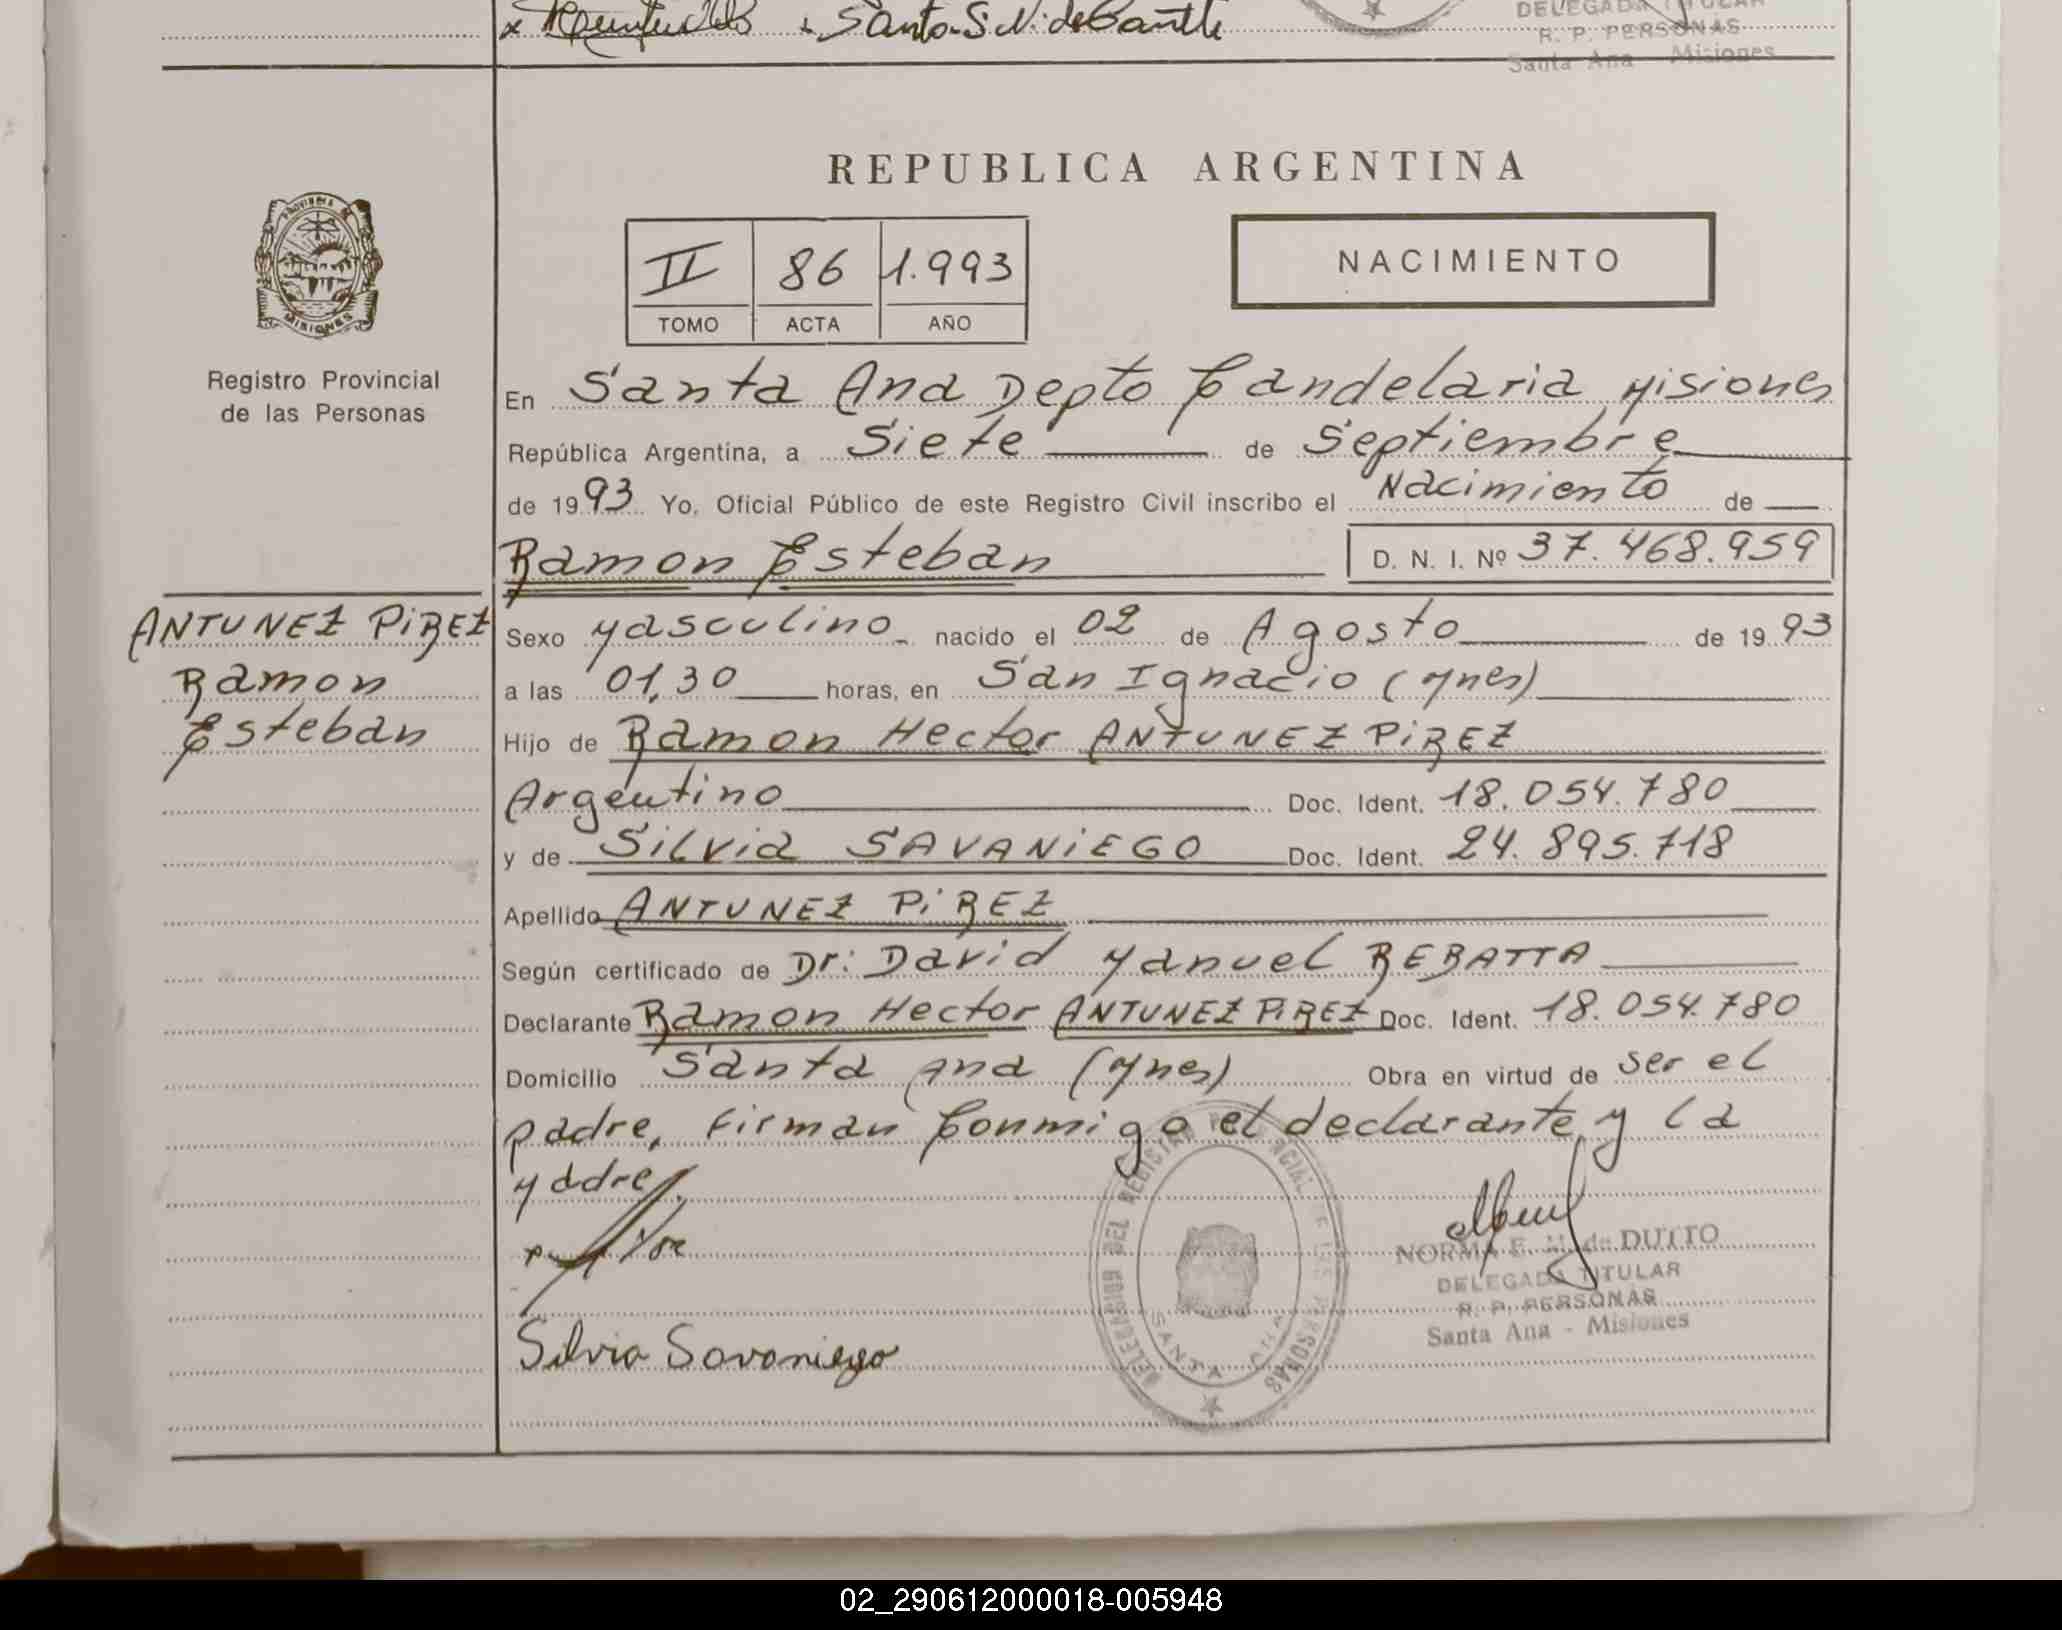 Santa S. N. de
DELEGADA TITULAR
R. P. PERSONAS
Santa Ana Misiones
REPUBLICA ARGENTINA
PROVINCIA DE
MISIONES
II 86 1.993
TOMO ACTA AÑO
NACIMIENTO
Registro Provincial
de las Personas
En Santa Ana Depto Candelaria Misiones
República Argentina, a Siete de Septiembre
de 1993 Yo, Oficial Público de este Registro Civil inscribo el Nacimiento de
Ramon Esteban D. N. I. Nº 37.468.959
ANTUNEZ PiREZ
Ramon
Esteban
Sexo Masculino nacido el 02 de Agosto de 1993
a las 01,30 horas, en San Ignacio (Mnes)
Hijo de Ramon Hector ANTUNEZ PiREZ
Argentino Doc. Ident. 18.054.780
y de Silvia SAVANiEGO Doc. Ident. 24.895.718
Apellido ANTUNEZ PiREZ
Según certificado de Dr: David Manuel REBATTA
Declarante Ramon Hector ANTUNEZ PiREZ Doc. Ident. 18.054.780
Domicilio Santa Ana (Mnes) Obra en virtud de ser el
padre, Firman Conmigo el declarante y la
Madre.
DELEGACION DEL REGISTRO PROVINCIAL DE LAS PERSONAS
SANTA ANA
NORMA E. M. de DUTTO
DELEGADA TITULAR
R. P. PERSONAS
Santa Ana - Misiones
Silvia Savaniego
02_290612000018-005948